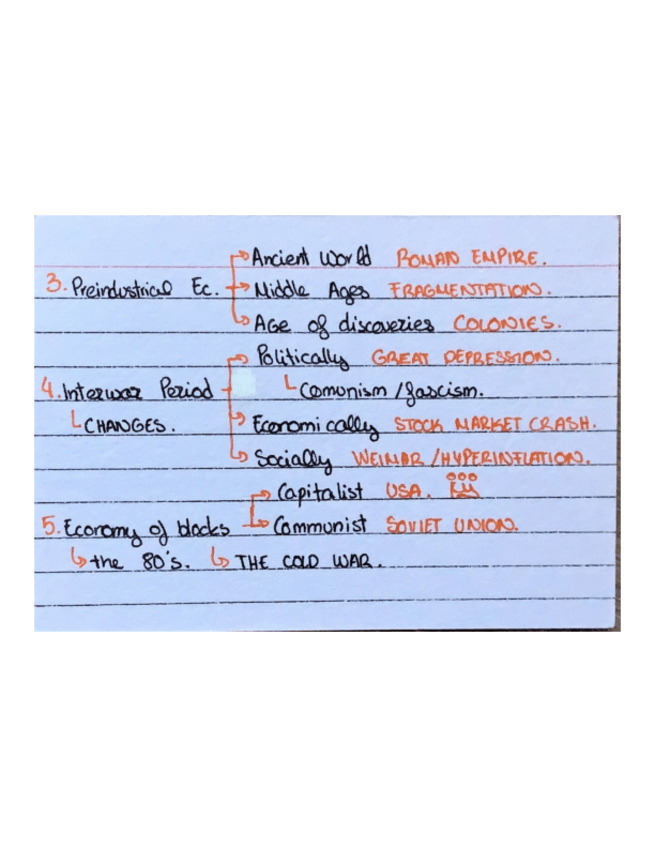 Ancient World ROMAN EMPIRE.
3. Preindustrial Ec. Middle Ages FRAGMENTATION.
Age of discoveries COLONIES.
Politically GREAT DEPRESSION.
4. Interwar Period Comunism / fascism.
CHANGES. Economically STOCK MARKET CRASH.
Socially WEIMAR / HYPERINFLATION.
Capitalist USA.
5. Economy of blocks Communist SOVIET UNION.
the 80's. THE COLD WAR.